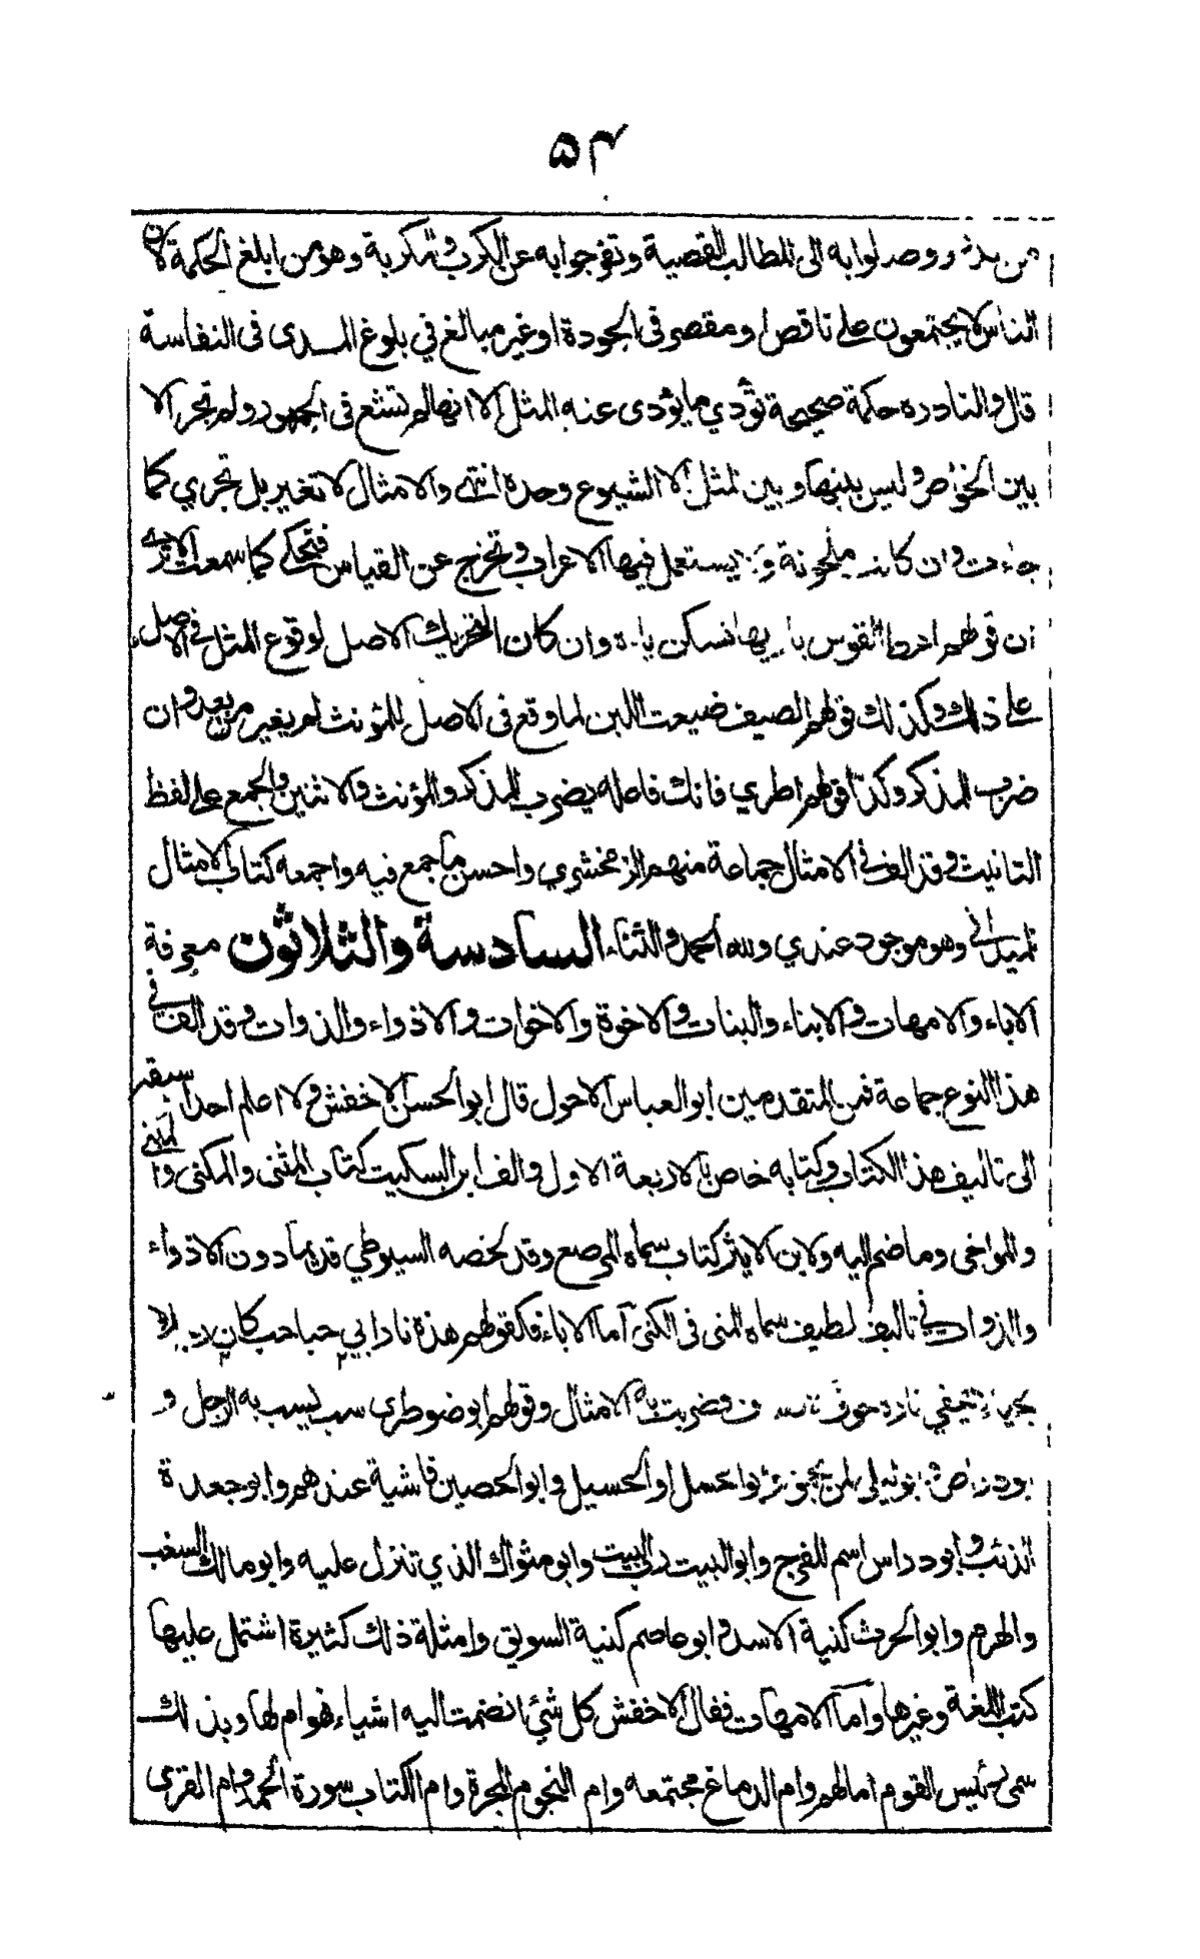 ۵۴
ووصلوا به الى المطالب القصية وتفرجوا به عن الكرب والمكربة وهو من ابلغ الحكمة لان
الناس لا يجتمعون على ناقص او مقصر فى الجودة او غير مبالغ في بلوغ المدى فى النفاسة
قال والنادرة حكمة صحيحة تؤدي ما يؤدى عنه المثل الا انها لم تشع فى الجمهور ولم تجر الا
بين الخواص وليس بينها وبين المثل الا الشيوع وحده انتهى والامثال لا تغير بل تجري كما
جاءت وان كانت ملحونة يستعمل فيها الاعراب وتخرج عن القياس فتحكى كما سمعت
ان قولهم اعط القوس باريها تسكن ياءه وان كان التحريك الاصل لوقوع المثل في الاصل
على ذلك وكذلك قولهم الصيف ضيعت اللبن لما وقع فى الاصل للمؤنث لم يغير من بعد وان
ضرب للمذكر وكذا قولهم اطري فانك فاعلة يضرب للمذكر والمؤنث والاثنين والجمع على لفظ
التانيث وقد الف في الامثال جماعة منهم الزمخشري واحسن ما جمع فيه واجمعه كتاب الامثال
للميداني وهو موجود عندي ولله الحمد والثناء السادسة والثلاثون معرفة
الاباء والامهات والابناء والبنات والاخوة والاخوات والاذواء والذوات وقد الف في
هذا النوع جماعة فمن المتقدمين ابو العباس الاحول قال ابو الحسن الاخفش ولا اعلم احدا سبقه
الى تاليف هذا الكتاب وكتابه خاص بالاربعة الاول والف ابن السكيت كتاب المثنى والمكنى والمبني
والمواخى وما ضم اليه ولابن الاثير كتاب سماه المرصع وقد لخصه السيوطي قديما دون الاذواء
والذوات في تاليف لطيف سماه المنى فى الكنى اما الاباء فكقولهم هذه نار ابي حباحب كان
ناره خوف وضربت به الامثال وقولهم ابو ضوطرى سب يسب به الرجل و
وابو الحصين فاشية عندهم وابو جعدة
الذئب وابو دراس اسم للفرج وابو البيت رب البيت وابو مثواك الذي تنزل عليه وابو مالك السغب
والهرم وابو الحرث كنية الاسد وابو عاصم كنية السويق وامثلة ذلك كثيرة اشتمل عليها
كتب اللغة وغيرها واما الامهات فقال الاخفش كل شئ انضمت اليه اشياء فهو ام لها وبذلك
سمى رئيس القوم اما لهم وام الدماغ مجتمعه وام النجوم المجرة وام الكتاب سورة الحمد وام القرى